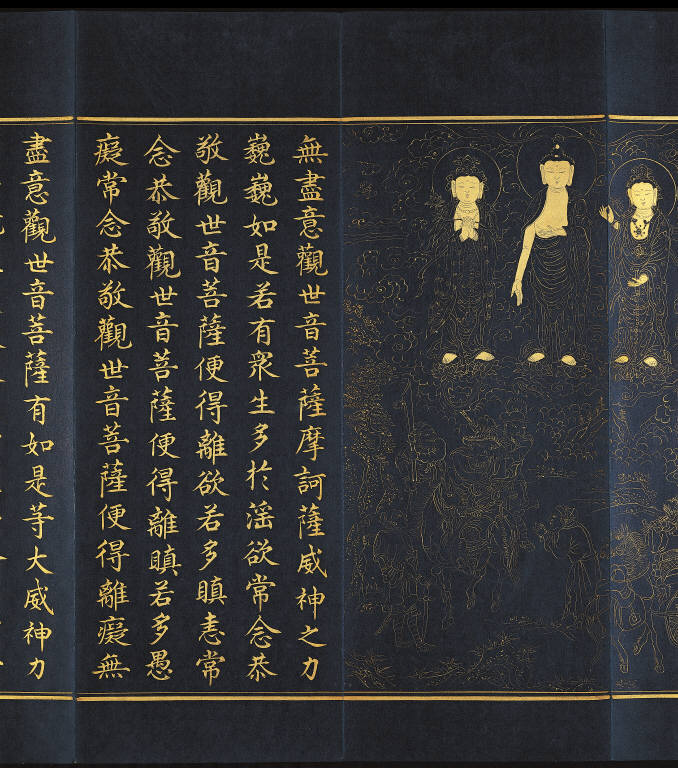 無盡意觀世音菩薩摩訶薩威神之力
巍巍如是若有衆生多於滛欲常念恭
敬觀世音菩薩便得離欲若多瞋恚常
念恭敬觀世音菩薩便得離瞋若多愚
癡常念恭敬觀世音菩薩便得離癡無
盡意觀世音菩薩有如是等大威神力